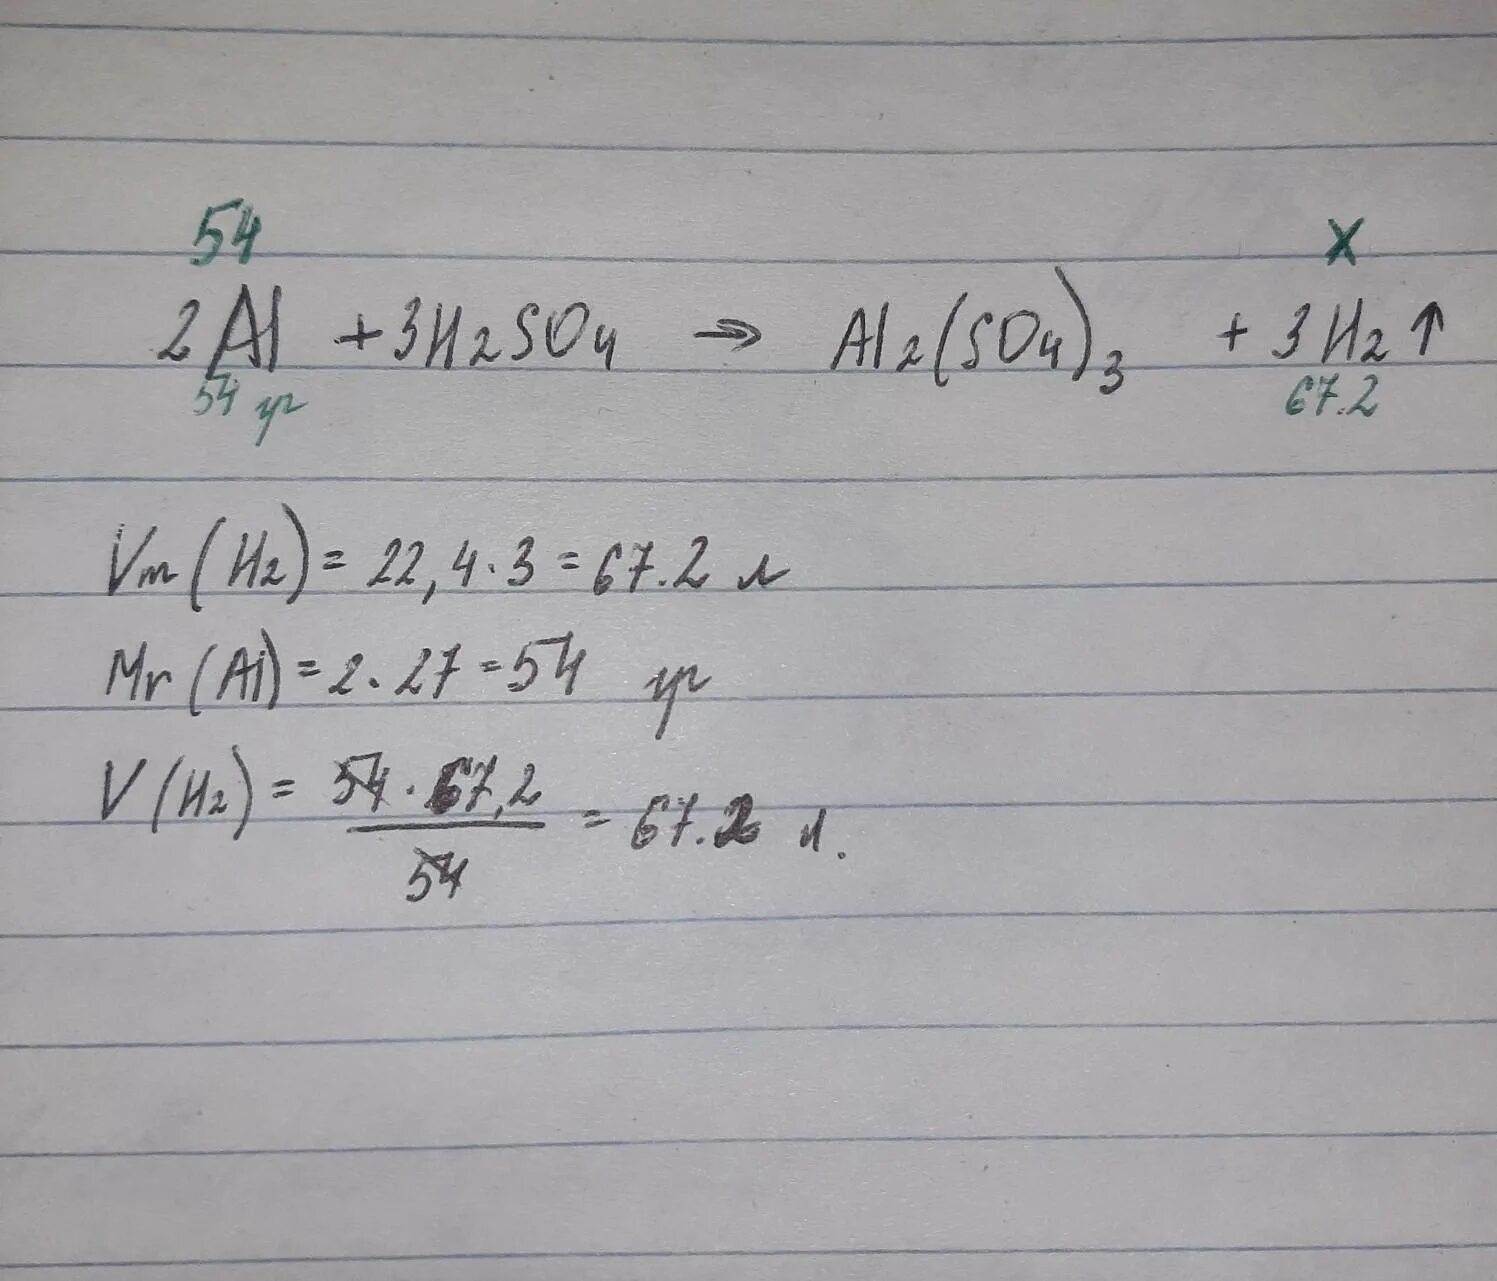 54 X
2Al + 3H2SO4 → Al2(SO4)3 + 3H2↑
54 гр 67.2
Vm(H2) = 22,4·3 = 67.2 л
Mr(Al) = 2·27 = 54 гр
V(H2) = 54·67,2 / 54 = 67.2 л.